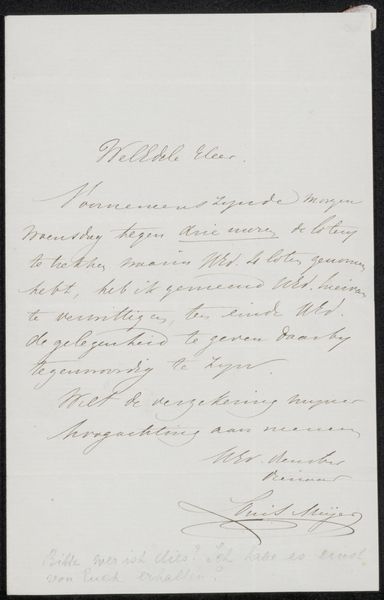 WelEdele Heer.
Voornemens zynde morgen
Woensdag tegen drie uren de lotery
te trekken waarin UEd. 4 loten genomen
hebt, heb ik gemeend UEd. hiervan
te verwittigen, ten einde UEd.
de gelegenheid te geven daarby
tegenwoordig te zyn.
Wilt de verzekering myner
hoogachting aannemen
UEd. dienstw
dienaar
Louis Meijer
Bitte wer ist dies? Ich habe es einst
von Euch erhalten.